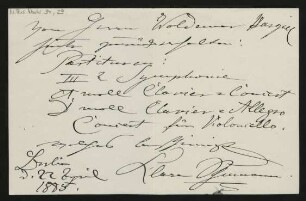 von Herrn Woldemar Bargiel
zurückerhalten:
Partituren:
III te Symphonie
A moll Clavier-Concert
D moll Clavier-Allegro
Concert für Violoncello.
Berlin
d. 22 April
1885.
Clara Schumann